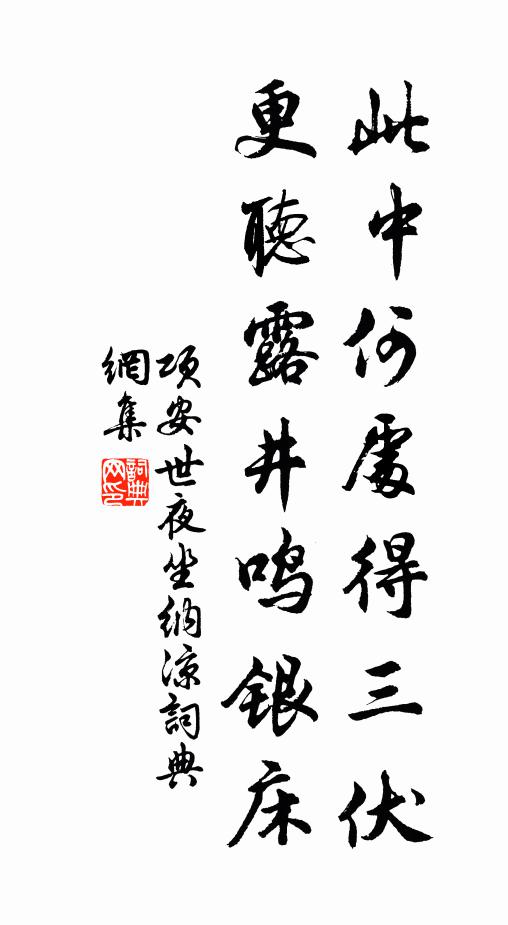 此中何處得三伏
更聽露井鳴銀床
項安世夜坐納涼詞典
網集
詞典網印